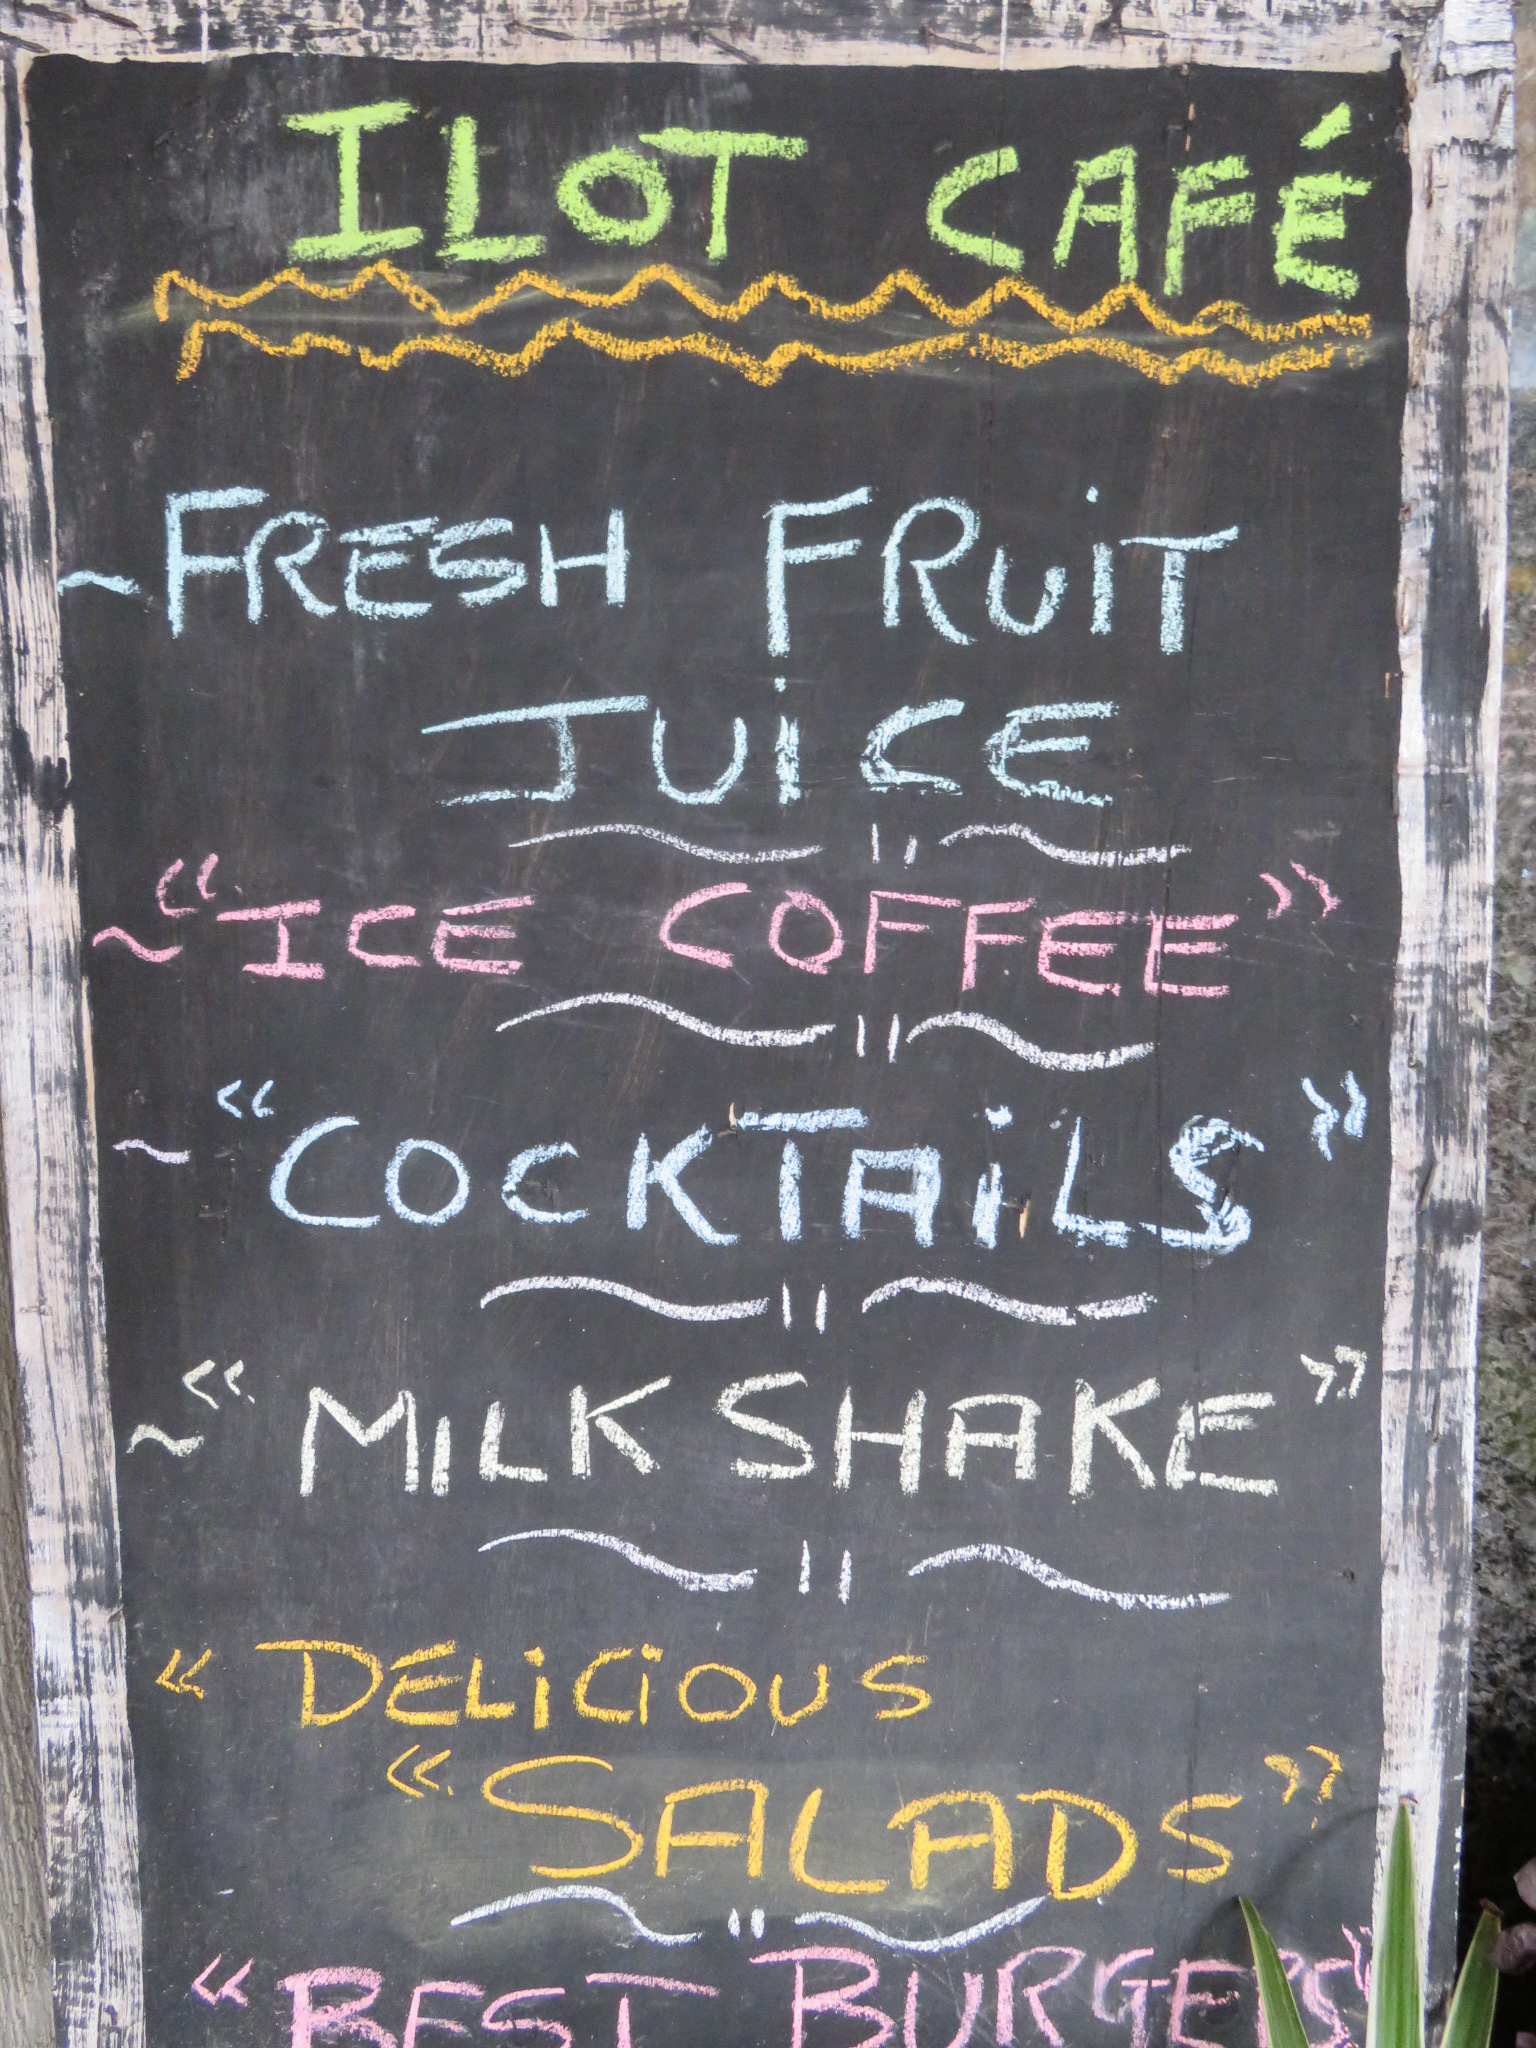 ILOT CAFÉ
~FRESH FRUiT
JUiCE
~"ICE COFFEE"
~"COCKTAiLS"
~"MILK SHAKE"
"DELiCiOUS
"SALADS"
"BEST BURGERS"